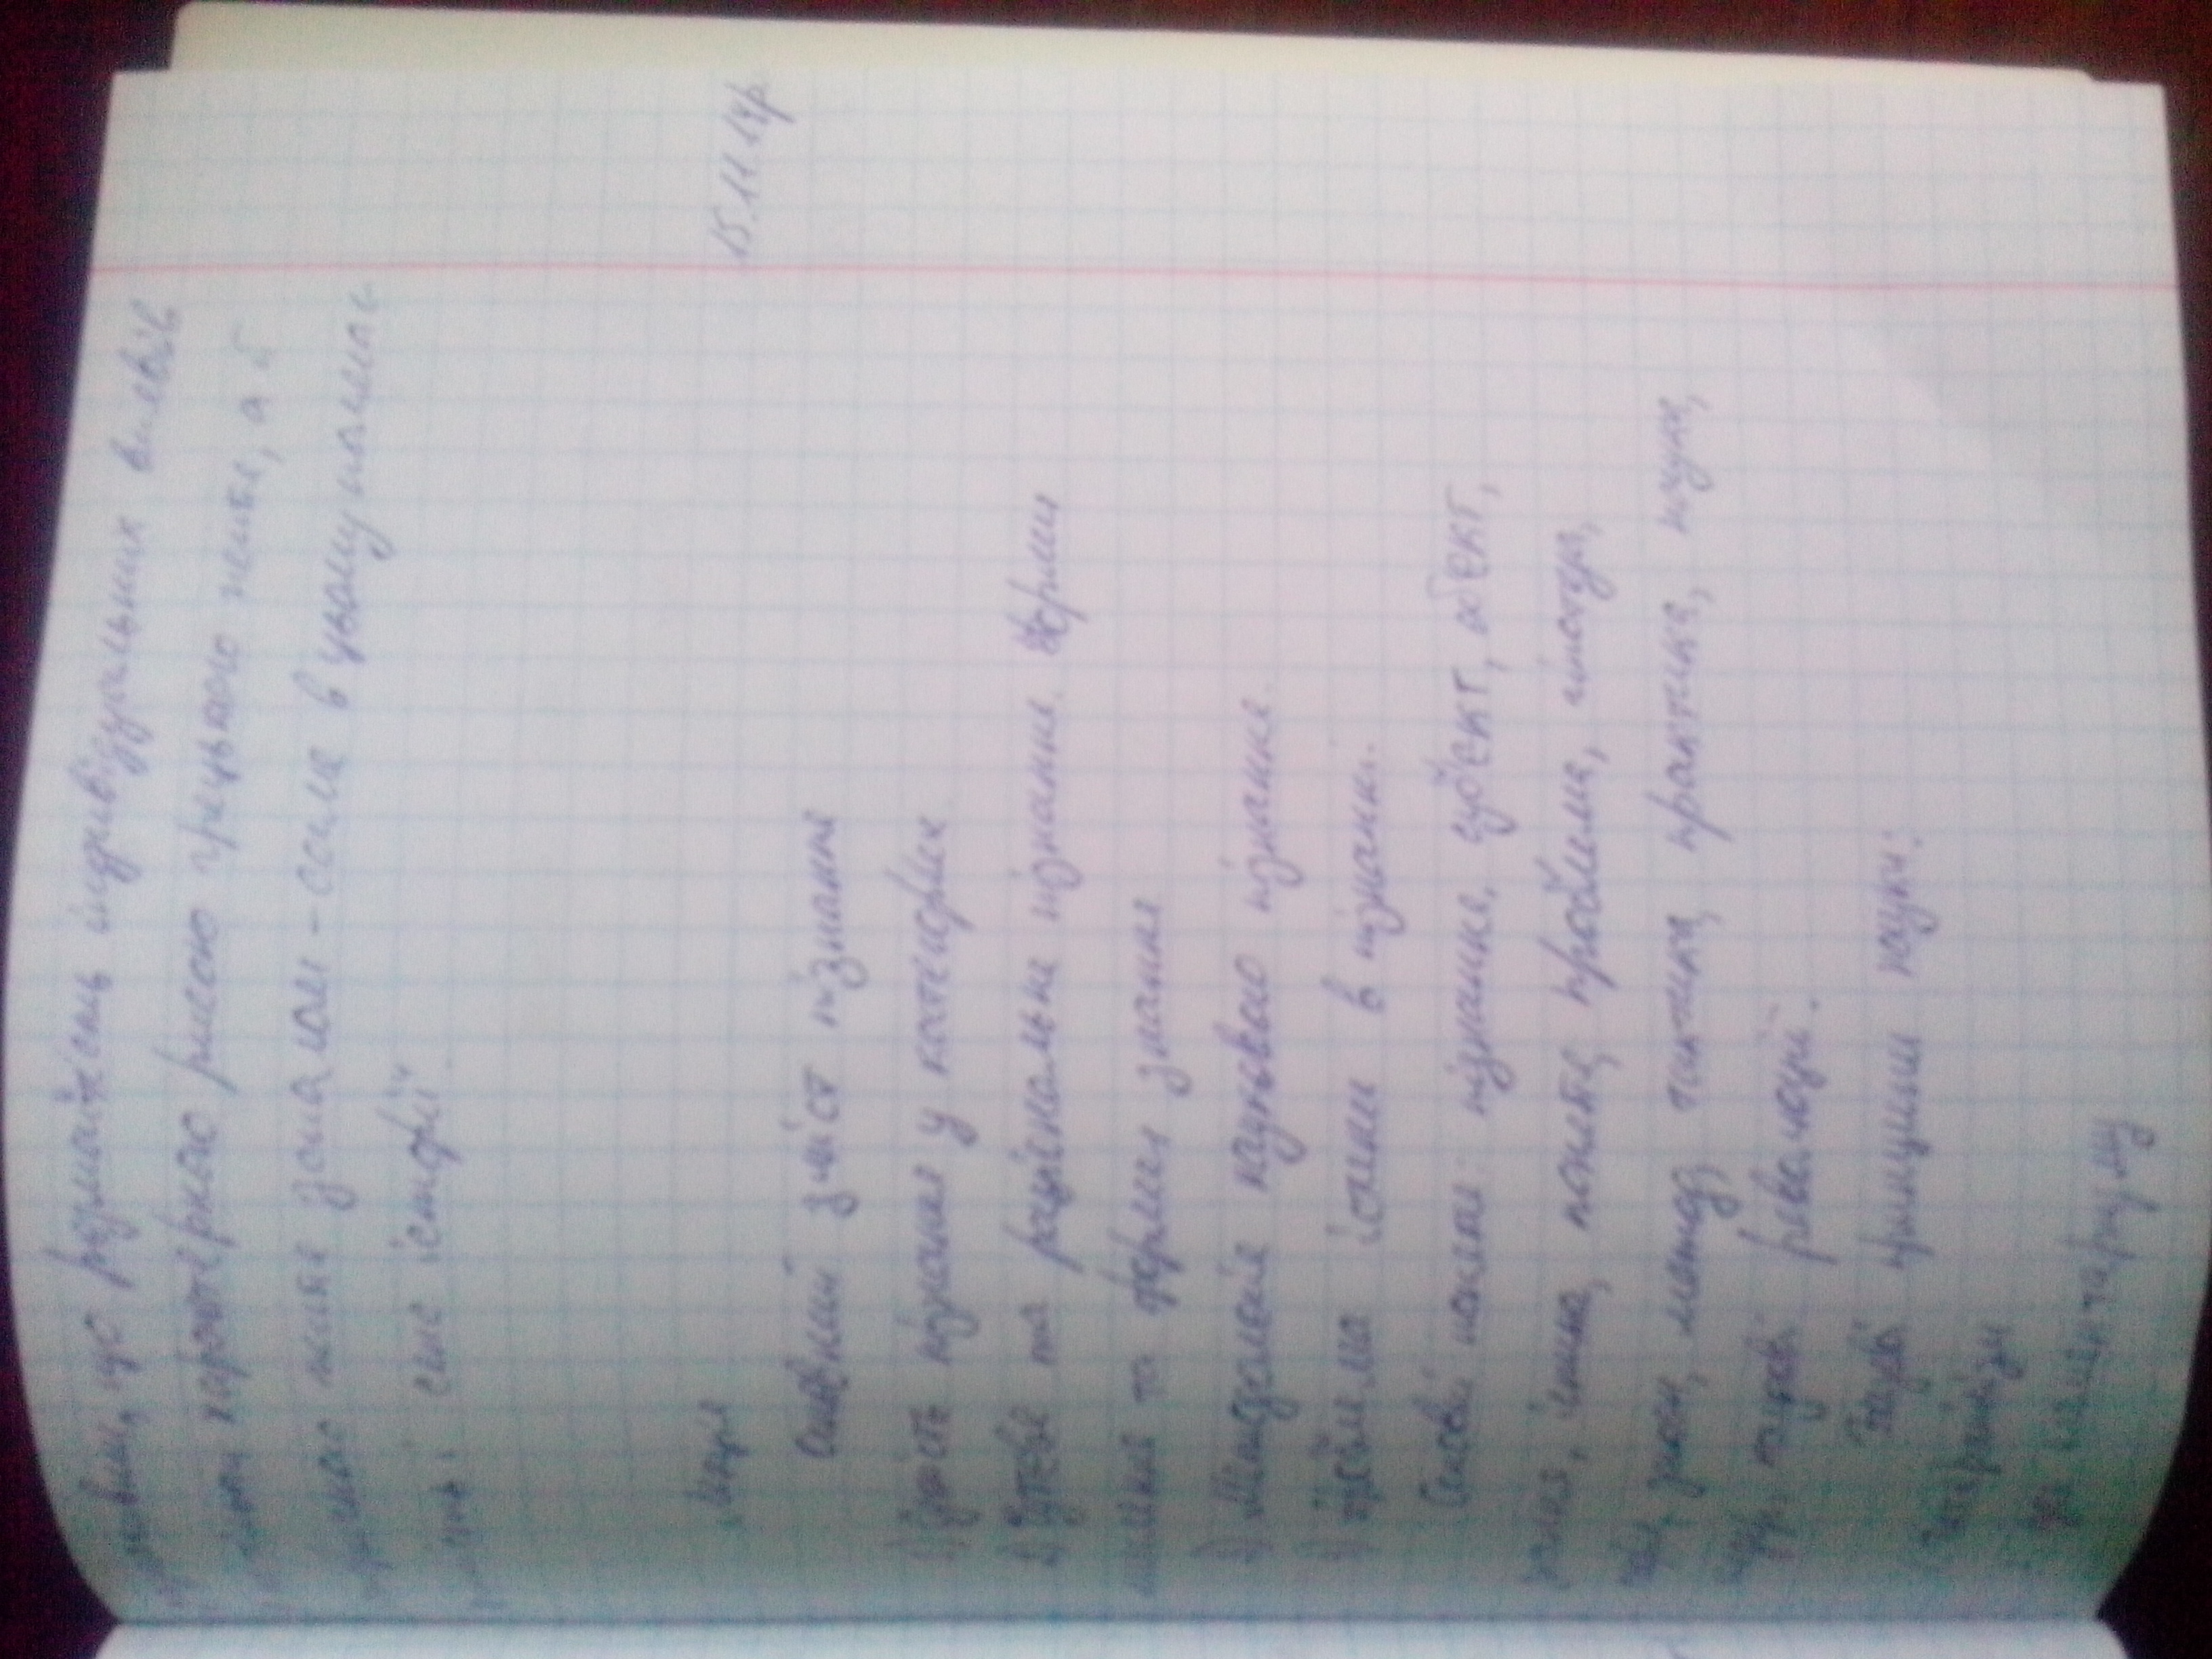 що розмаїтість індивідуальних виявів
характерною рисою грецького життя, а й
життя загалом – саме в цьому полягає
і сенс історії".
Лекція
15.11.14р
Основний зміст пізнання
1) Зміст пізнання у категоріях.
2) Чуттєве та раціональне пізнання. Форми
мислення та форми знання
3) Методологія наукового пізнання.
4) Проблема істини в пізнанні.
Основні поняття: пізнання, суб'єкт, об'єкт,
знання, істина, поняття, проблема, гіпотеза,
закон, метод, тактика, практика, наука,
наукові революції.
Базові принципи науки: